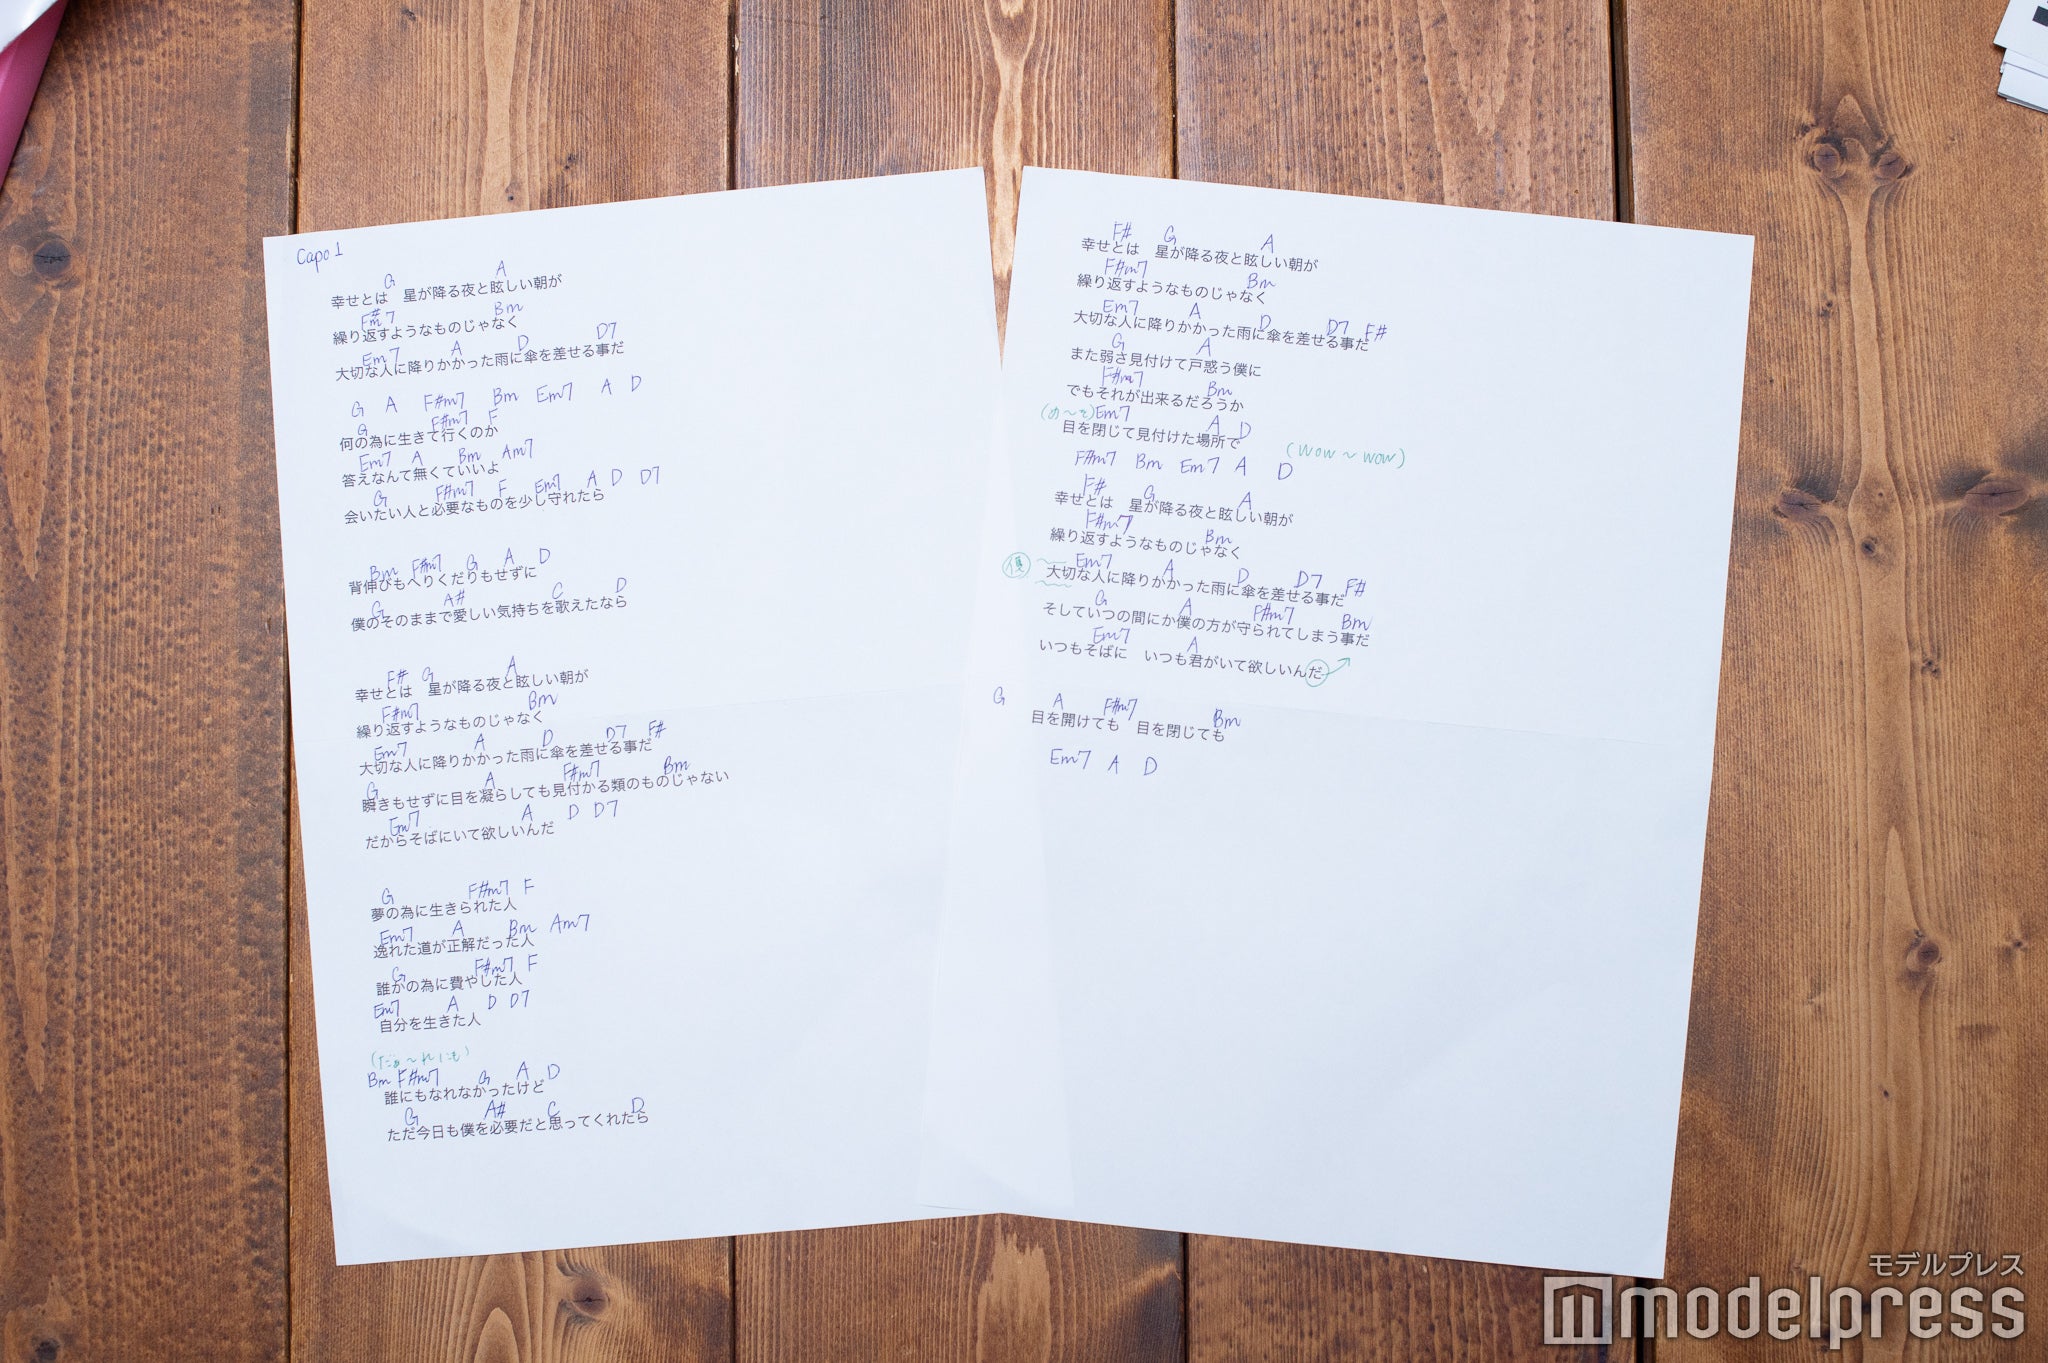 Capo 1
G A
幸せとは　星が降る夜と眩しい朝が
F#m7 Bm
繰り返すようなものじゃなく
Em7 A D D7
大切な人に降りかかった雨に傘を差せる事だ
G A F#m7 Bm Em7 A D
G F#m7 F
何の為に生きて行くのか
Em7 A Bm Am7
答えなんて無くていいよ
G F#m7 F Em7 A D D7
会いたい人と必要なものを少し守れたら
Bm F#m7 G A D
背伸びもへりくだりもせずに
G A# C D
僕のそのままで愛しい気持ちを歌えたなら
F# G A
幸せとは　星が降る夜と眩しい朝が
F#m7 Bm
繰り返すようなものじゃなく
Em7 A D D7 F#
大切な人に降りかかった雨に傘を差せる事だ
G A F#m7 Bm
瞬きもせずに目を凝らしても見付かる類のものじゃない
Em7 A D D7
だからそばにいて欲しいんだ
G F#m7 F
夢の為に生きられた人
Em7 A Bm Am7
逸れた道が正解だった人
G F#m7 F
誰かの為に費やした人
Em7 A D D7
自分を生きた人
(だぁ～れにも)
Bm F#m7 G A D
誰にもなれなかったけど
G A# C D
ただ今日も僕を必要だと思ってくれたら
F# G A
幸せとは　星が降る夜と眩しい朝が
F#m7 Bm
繰り返すようなものじゃなく
Em7 A D D7 F#
大切な人に降りかかった雨に傘を差せる事だ
G A
また弱さ見付けて戸惑う僕に
F#m7 Bm
でもそれが出来るだろうか
(め～を) Em7 A D
目を閉じて見付けた場所で
(wow～wow)
F#m7 Bm Em7 A D
F# G A
幸せとは　星が降る夜と眩しい朝が
F#m7 Bm
繰り返すようなものじゃなく
Em7 A D D7 F#
大切な人に降りかかった雨に傘を差せる事だ
G A F#m7 Bm
そしていつの間にか僕の方が守られてしまう事だ
Em7 A
いつもそばに　いつも君がいて欲しいんだ
G A F#m7 Bm
目を開けても　目を閉じても
Em7 A D
モデルプレス
modelpress